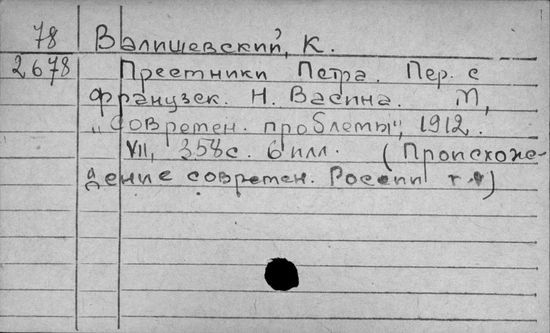 78 Валишевский, К.
2678 Преемники Петра. Пер. с
француз­ск. Н. Васина. М,
„Современ. проблемы", 1912.
VII, 358с. 6 илл. (Происхож-
дение современ. России